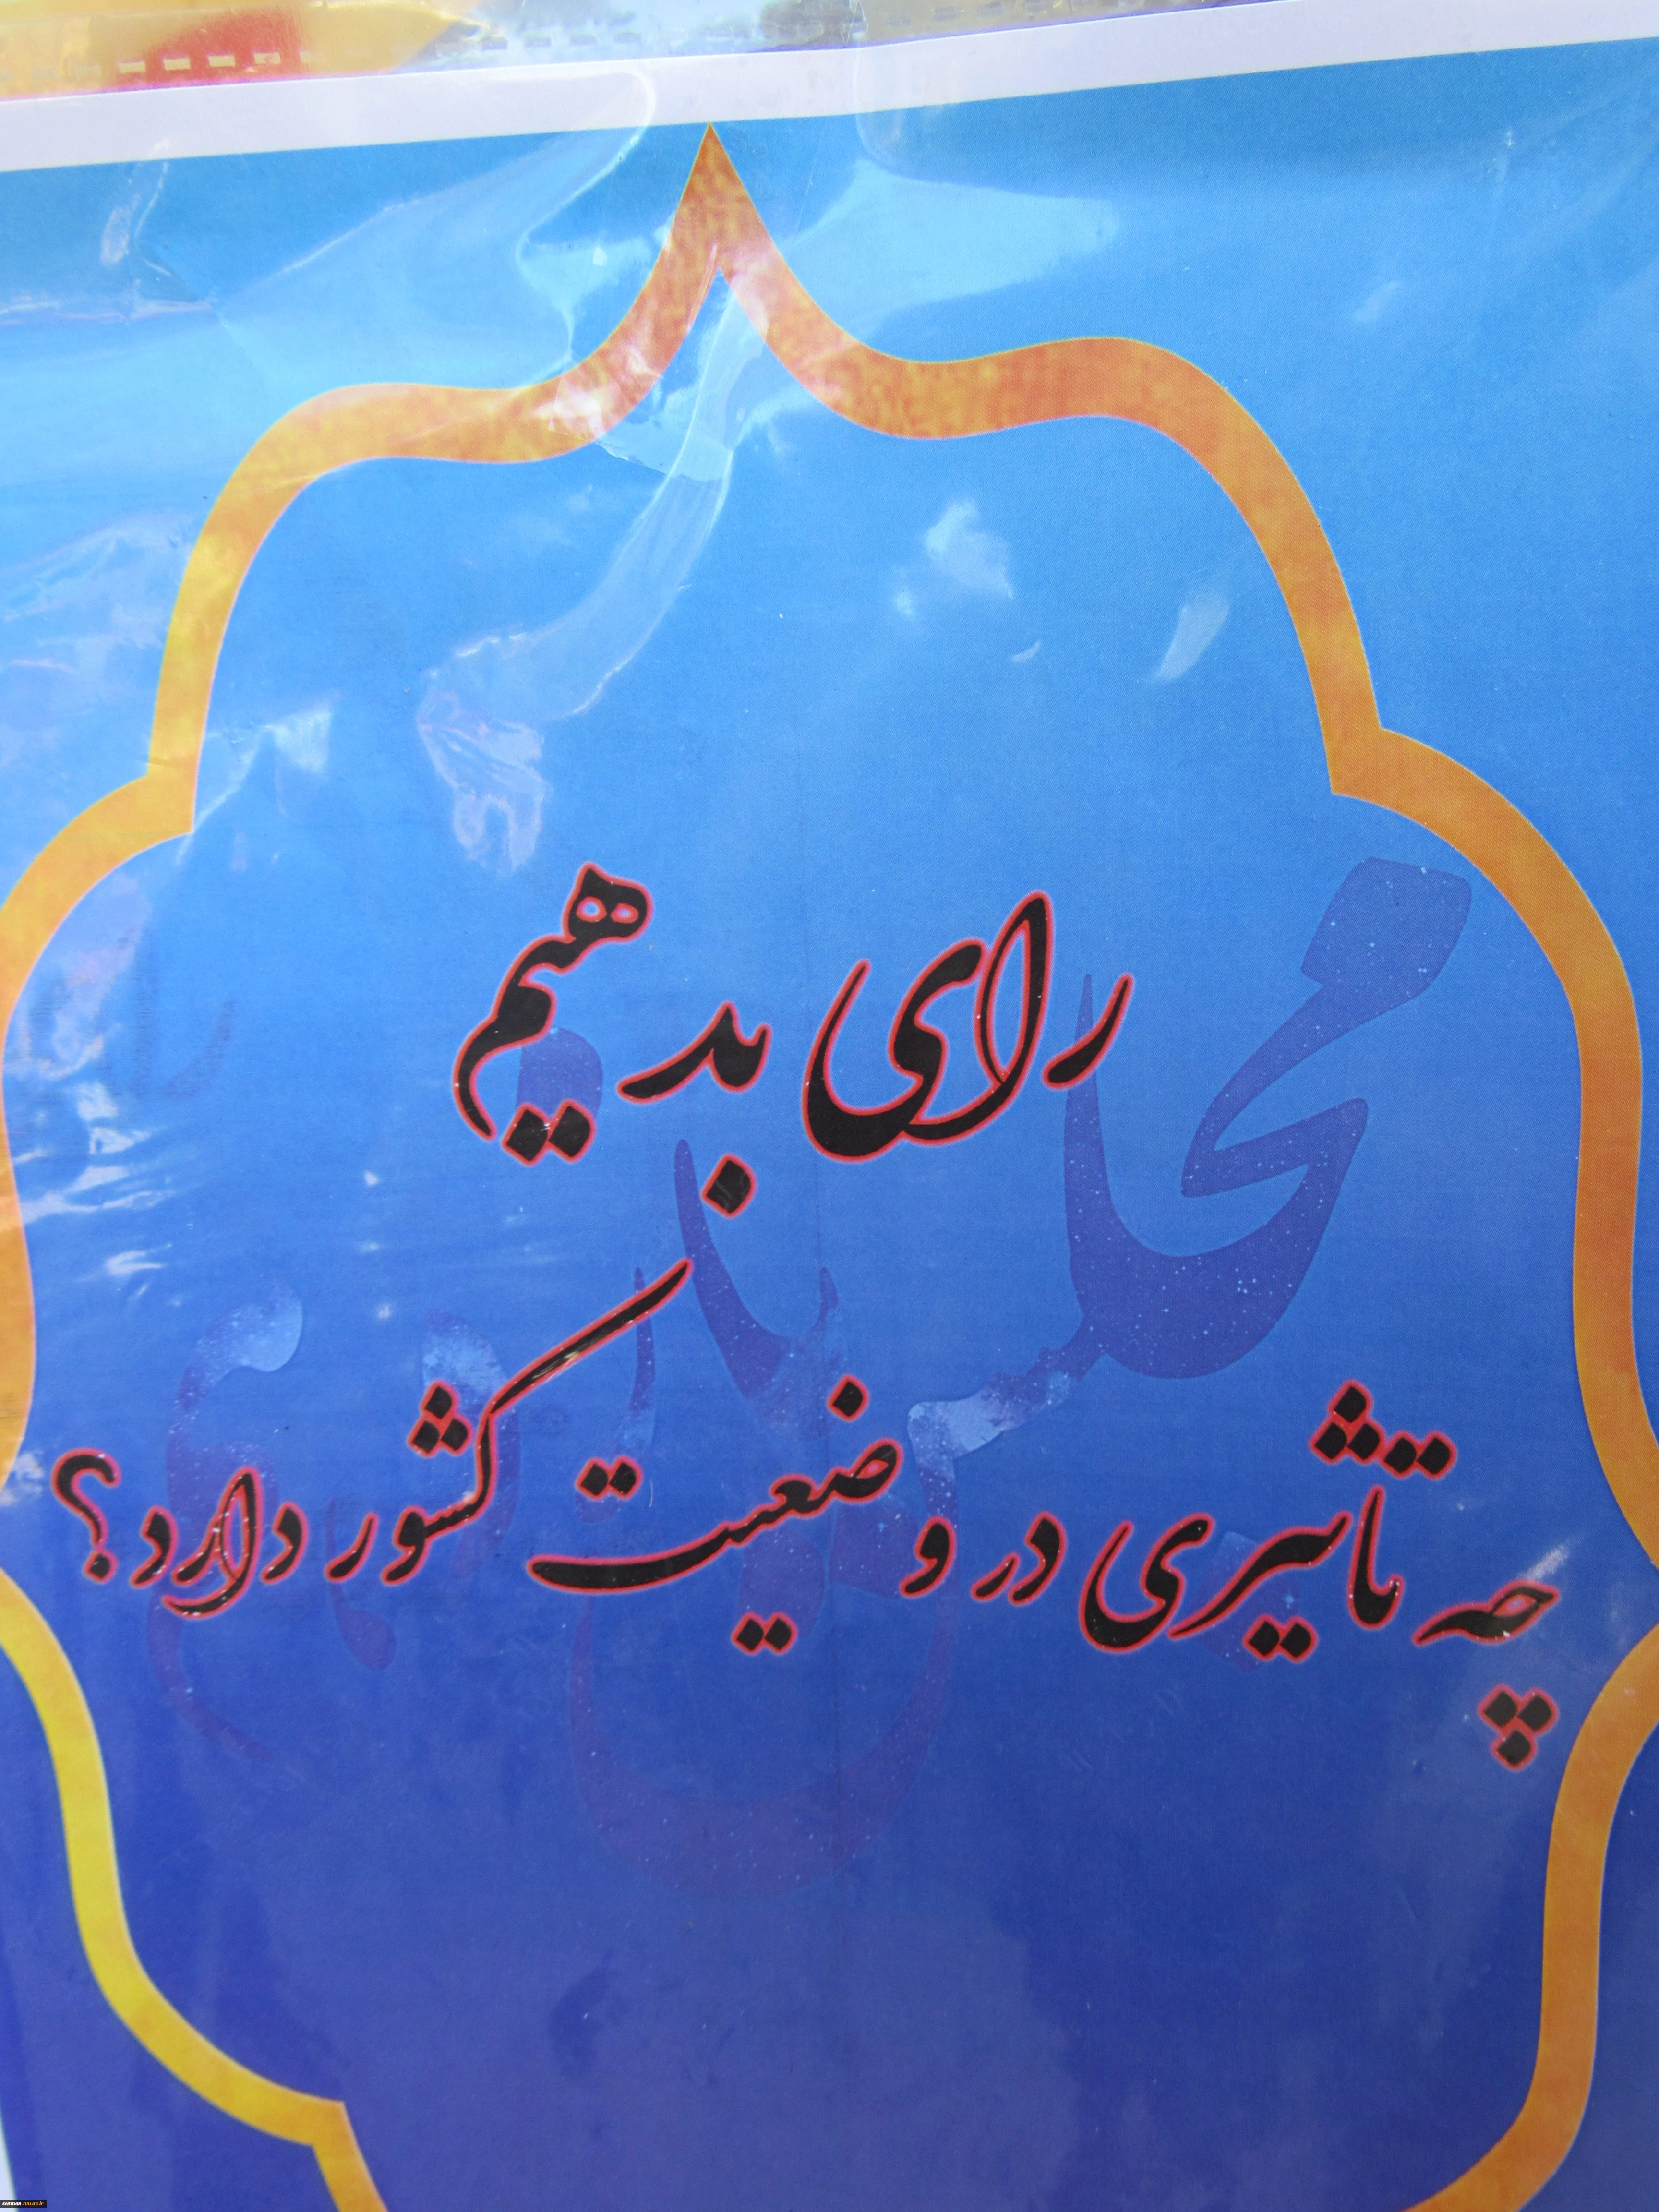 رای بدهیم
چه تاثیری در وضعیت کشور دارد؟